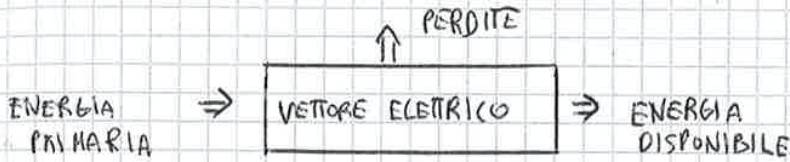 PERDITE
ENERGIA
PRIMARIA
VETTORE ELETTRICO
ENERGIA
DISPONIBILE